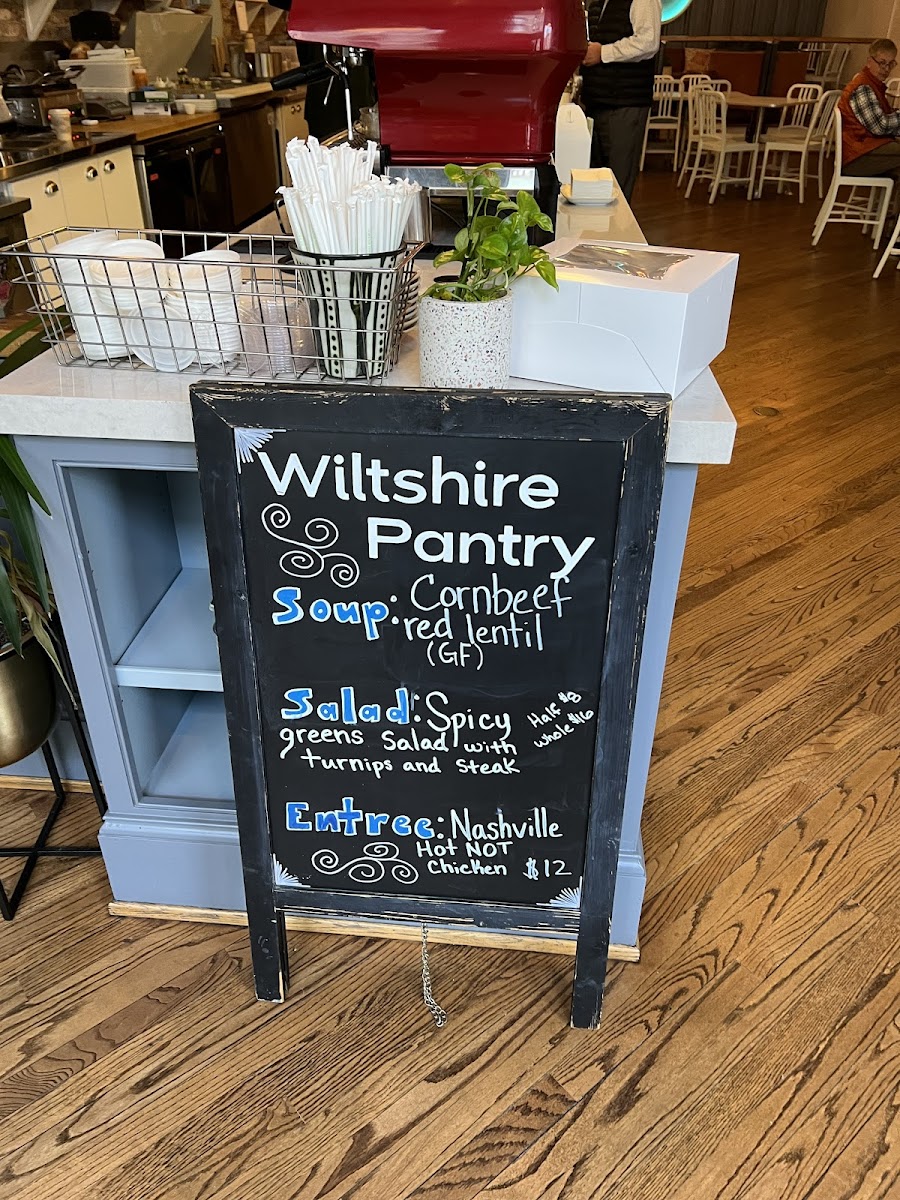 Wiltshire
Pantry
Soup: Cornbeef
red lentil
(GF)
Salad: Spicy
greens Salad with
turnips and steak
Half $8
whole $16
Entree: Nashville
Hot NOT
Chicken $12